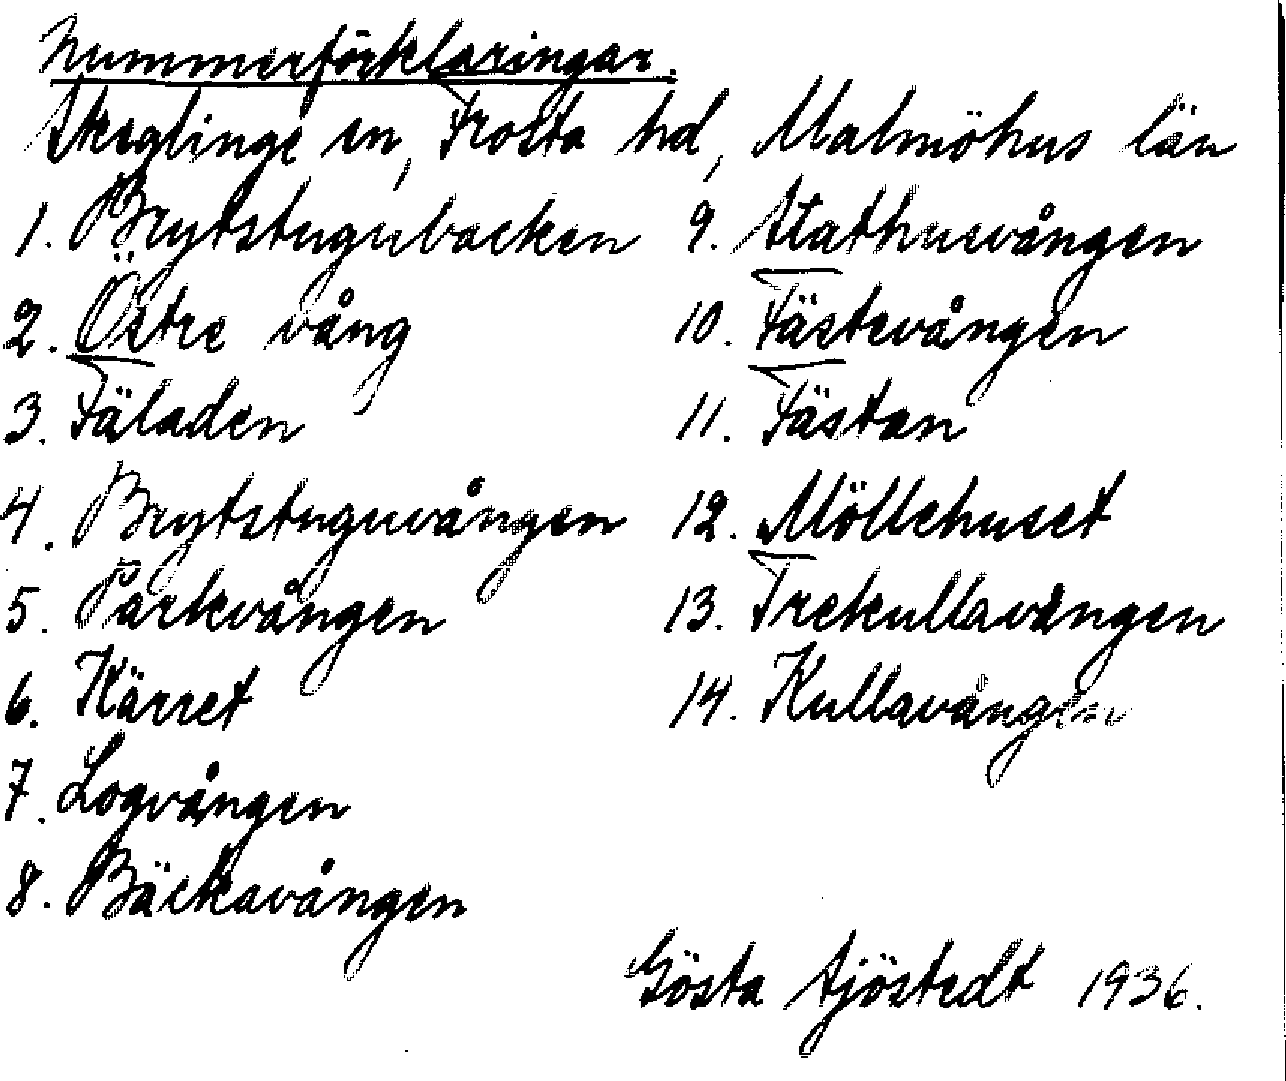 Nummerförklaringar.
Skeglinge sn, Frosta hd, Malmöhus län
1. Brytstugubacken
2. Östre vång
3. Fäladen
4. Brytstuguvången
5. Parkvången
6. Kärret
7. Logvången
8. Bäckavången
9. Stathusvången
10. Fästevången
11. Fästan
12. Möllehuset
13. Trekullavången
14. Kullavången
Gösta Sjöstedt 1936.